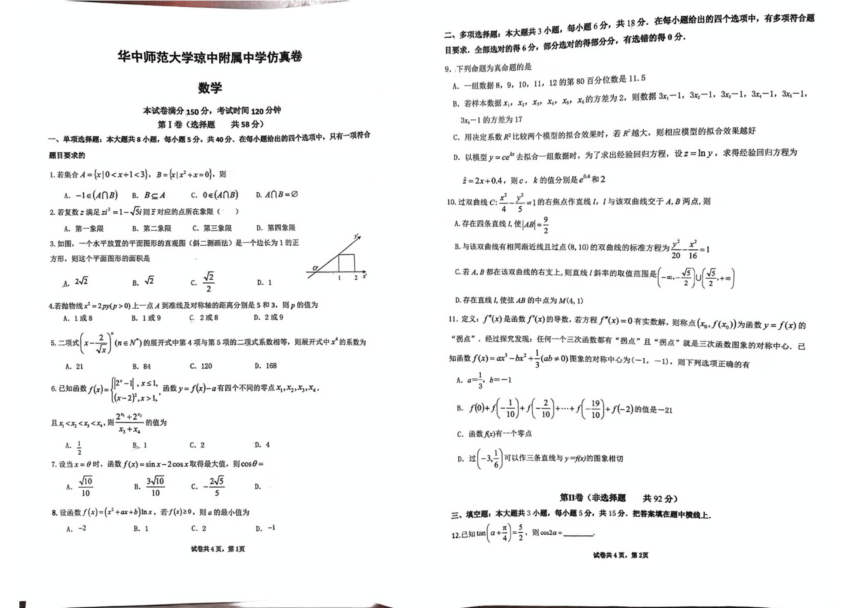 华中师范大学琼中附属中学仿真卷
数学
本试卷满分 150 分，考试时间 120 分钟
第 I 卷（选择题 共 58 分）
一、单项选择题：本大题共 8 小题，每小题 5 分，共 40 分．在每小题给出的四个选项中，只有一项符合
题目要求的
1.若集合 A={x|0<x+1<3}，B={x|x²+x=0}，则
A．-1∈(A∩B) B．B⊆A C．0∈(A∩B) D．A∩B=∅
2.若复数 z 满足 zi³=1-√5i 则 z̄ 对应的点所在象限（ ）
A．第一象限 B．第二象限 C．第三象限 D．第四象限
3.如图，一个水平放置的平面图形的直观图（斜二测画法）是一个边长为 1 的正
方形，则这个平面图形的面积是
A．2√2 B．√2 C．√2/2 D．1
4.若抛物线 x²=2py(p>0) 上一点 A 到准线及对称轴的距离分别是 5 和 3，则 p 的值为
A．1 或 8 B．1 或 9 C．2 或 8 D．2 或 9
5.二项式(x-2/√x)ⁿ(n∈N*)的展开式中第 4 项与第 5 项的二项式系数相等，则展开式中 x⁴ 的系数为
A．21 B．84 C．120 D．168
6.已知函数 f(x)={|2ˣ-1|，x≤1，(x-2)²，x>1， 函数 y=f(x)-a 有四个不同的零点 x₁，x₂，x₃，x₄，
且 x₁<x₂<x₃<x₄，则 (2^x₁+2^x₂)/(x₃+x₄) 的值为
A．1/2 B．1 C．2 D．4
7.设当 x=θ 时，函数 f(x)=sin x-2cos x 取得最大值，则 cosθ=
A．√10/10 B．3√10/10 C．-2√5/5 D．
8.设函数 f(x)=(x²+ax+b)ln x，若 f(x)≥0，则 a 的最小值为
A．-2 B．1 C．2 D．-1
试卷共 4 页，第 1页
二、多项选择题：本大题共 3 小题，每小题 6 分，共 18 分．在每小题给出的四个选项中，有多项符合题
目要求．全部选对的得 6 分，部分选对的得部分分，有选错的得 0 分．
9．下列命题为真命题的是
A．一组数据 8，9，10，11，12 的第 80 百分位数是 11.5
B．若样本数据 x₁，x₂，x₃，x₄，x₅，x₆ 的方差为 2，则数据 3x₁-1，3x₂-1，3x₃-1，3x₄-1，3x₅-1，
3x₆-1 的方差为 17
C．用决定系数 R² 比较两个模型的拟合效果时，若 R² 越大，则相应模型的拟合效果越好
D．以模型 y=ce^kx 去拟合一组数据时，为了求出经验回归方程，设 z=ln y，求得经验回归方程为
ẑ=2x+0.4，则 c，k 的值分别是 e^0.4 和 2
10.过双曲线 C: x²/4-y²/5=1 的右焦点作直线 l，l 与该双曲线交于 A,B 两点,则
A.存在四条直线 l,使|AB|=9/2
B.与该双曲线有相同渐近线且过点(8,10)的双曲线的标准方程为 y²/20-x²/16=1
C.若 A,B 都在该双曲线的右支上,则直线 l 斜率的取值范围是(-∞,-√5/2)∪(√5/2,+∞)
D.存在直线 l,使弦 AB 的中点为 M(4,1)
11．定义：f″(x) 是函数 f′(x) 的导数，若方程 f″(x)=0 有实数解，则称点(x₀, f(x₀))为函数 y=f(x) 的
“拐点”．经过探究发现：任何一个三次函数都有“拐点”且“拐点”就是三次函数图象的对称中心．已
知函数 f(x)=ax³-bx²+1/3(ab≠0) 图象的对称中心为(-1，-1)，则下列选项正确的有
A．a=1/3，b=-1
B．f(0)+f(-1/10)+f(-2/10)+…+f(-19/10)+f(-2)的值是-21
C．函数 f(x)有一个零点
D．过(-3,1/6)可以作三条直线与 y=f(x)的图象相切
第II卷（非选择题 共 92 分）
三、填空题：本大题共 3 小题，每小题 5 分，共 15 分．把答案填在题中横线上．
12.已知 tan(α+π/4)=5/2，则 cos2α=______．
试卷共 4 页，第 2页